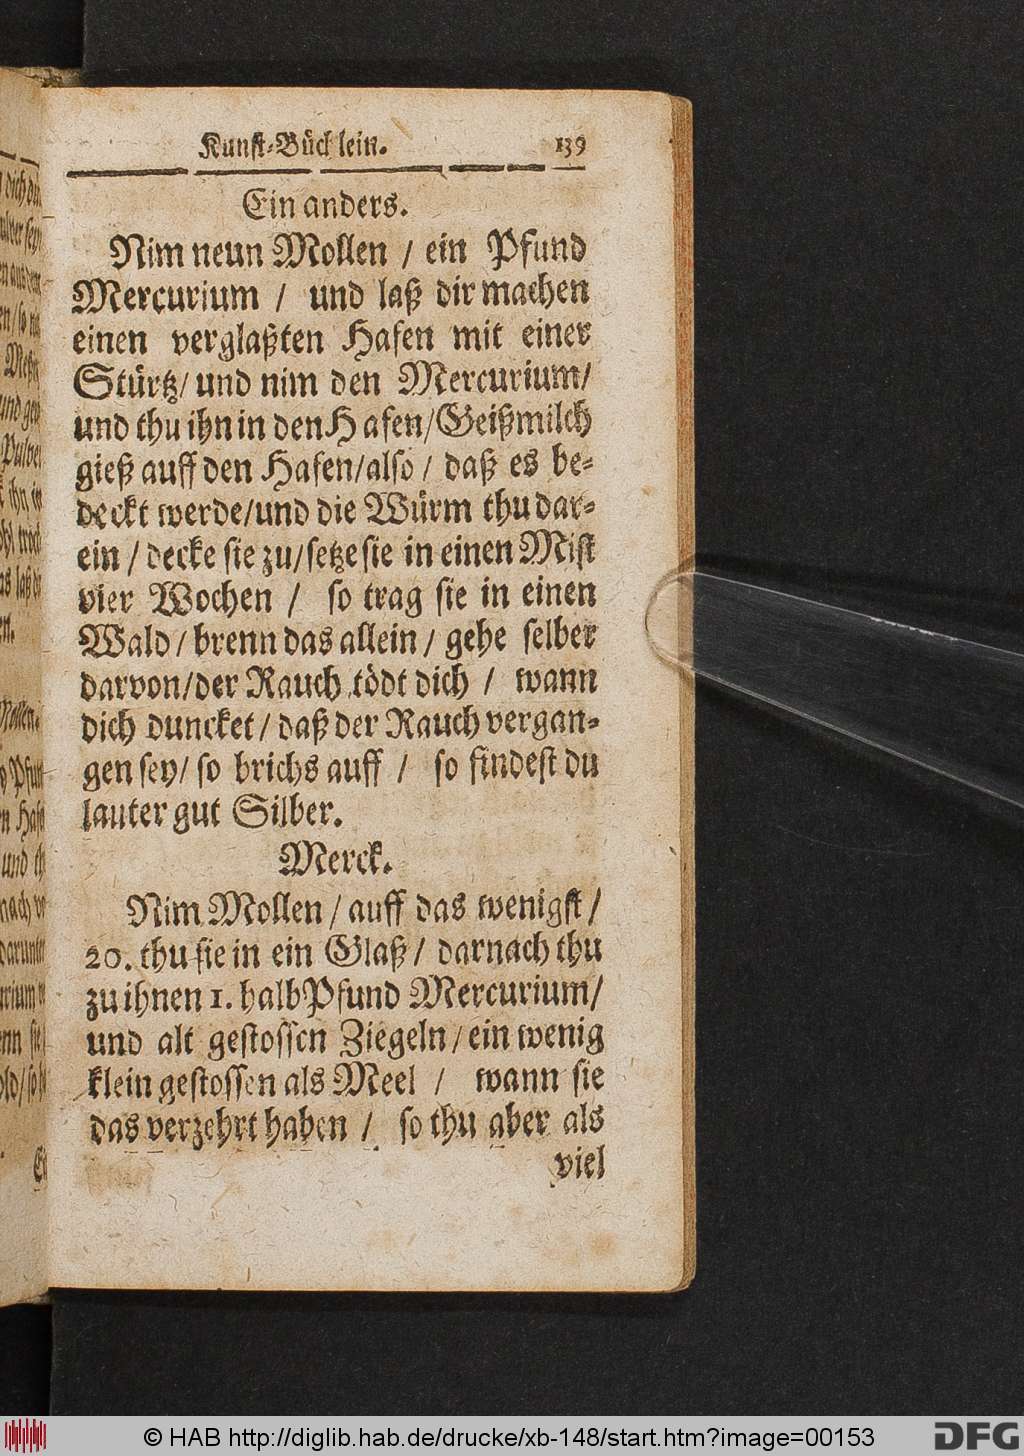 Kunst-Büchlein. 139
Ein anders.
Nim neun Mollen / ein Pfund
Mercurium / und laß dir machen
einen verglaßten Hafen mit einer
Stürtz/ und nim den Mercurium/
und thu ihn in den Hafen/Geißmilch
gieß auff den Hafen/also / daß es be-
deckt werde/und die Würm thu dar-
ein / decke sie zu/setze sie in einen Mist
vier Wochen / so trag sie in einen
Wald/ brenn das allein / gehe selber
darvon/der Rauch tödt dich / wann
dich duncket / daß der Rauch vergan-
gen sey/ so brichs auff / so findest du
lauter gut Silber.
Merck.
Nim Mollen / auff das wenigst /
20. thu sie in ein Glaß / darnach thu
zu ihnen 1. halb Pfund Mercurium/
und alt gestossen Ziegeln / ein wenig
klein gestossen als Meel / wann sie
das verzehrt haben / so thu aber als
viel
© HAB http://diglib.hab.de/drucke/xb-148/start.htm?image=00153
DFG